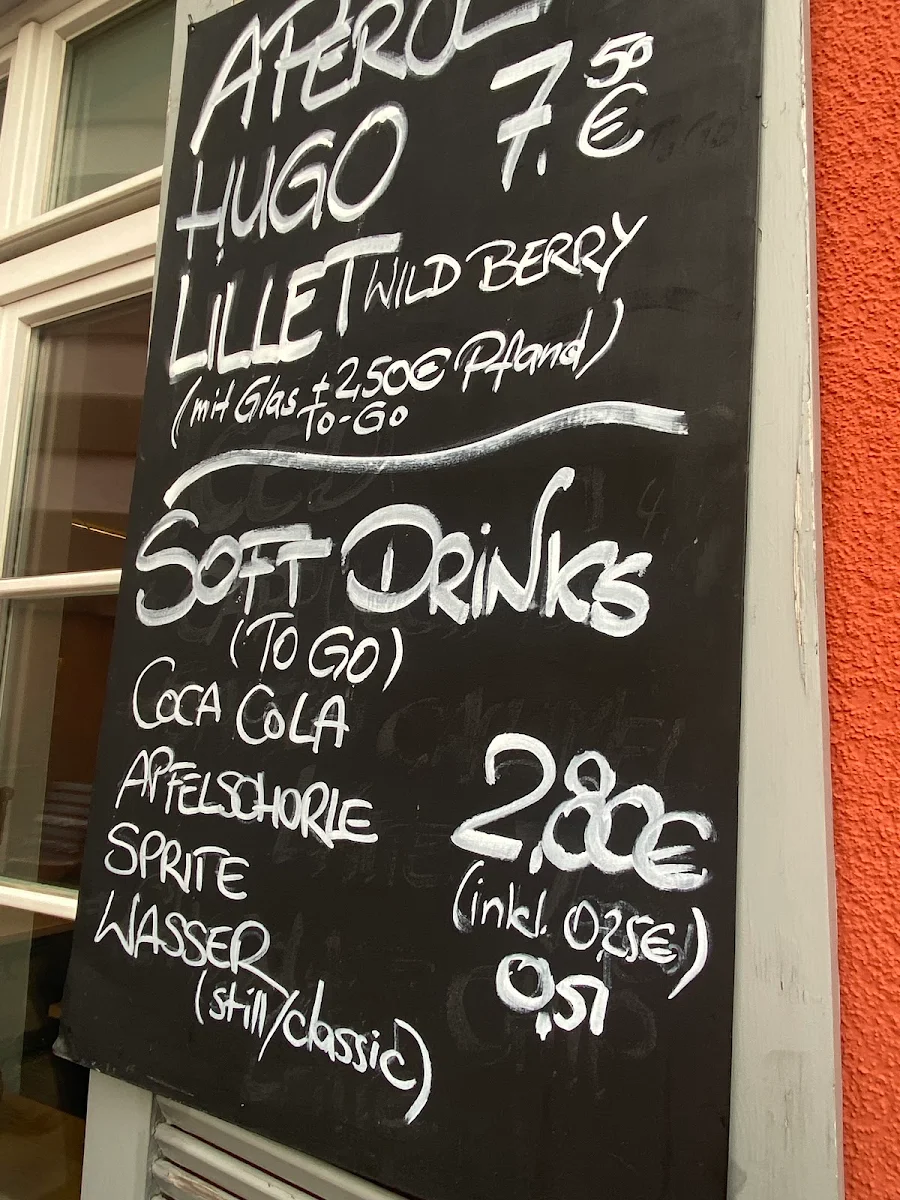 APEROL
HUGO 7.50 €
LILLET WILD BERRY
(mit Glas + 2,50€ Pfand)
To-Go
SOFT DRINKS
(TO GO)
COCA COLA
APFELSCHORLE 2,80€
SPRITE (inkl. 0,25€)
WASSER 0,5l
(still/classic)